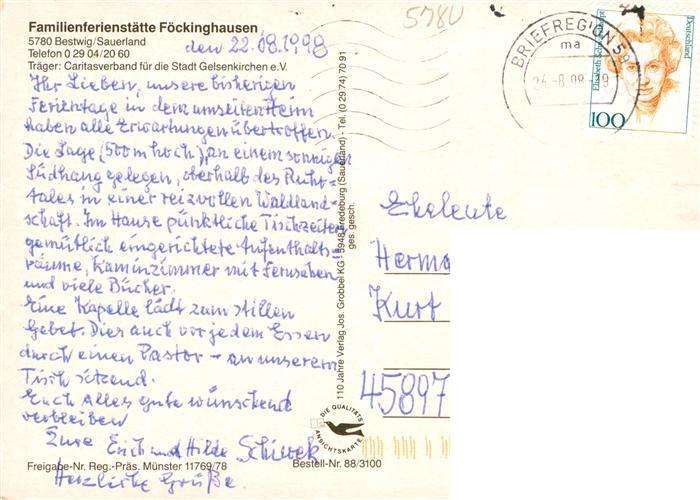 Familienferienstätte Föckinghausen
5780 Bestwig/Sauerland
Telefon 0 29 04/20 60
Träger: Caritasverband für die Stadt Gelsenkirchen e.V.
den 22.08.1998
Ihr Lieben, unsere bisherigen
Ferientage in dem umseiten Heim
haben alle Erwartungen übertroffen.
Die Lage, (500m hoch), an einem sonnigen
Südhang gelegen, oberhalb des Ruhr-
tales in einer reizvollen Waldland-
schaft. Im Hause pünktliche Tischzeiten
gemütlich eingerichtete Aufenthalts-
räume, Kaminzimmer mit Fernsehen
und viele Bücher.
Eine Kapelle lädt zum stillen
Gebet. Dies auch vor jedem Essen
durch einen Pastor - an unserem
Tisch sitzend.
Euch Alles gute wünschend
verbleiben
Eure Erich und Hilde
Herzliche Grüße.
Freigabe-Nr. Reg.-Präs. Münster 11769/78
Bestell-Nr. 88/3100
110 Jahre Verlag Jos. Grobbel KG · 5948 Fredeburg (Sauerland) - Tel. (0 29 74) 70 91
ges. gesch.
DIE QUALITÄTS
ANSICHTSKARTE
5780
BRIEFREGION 59
ma
Deutschland
100
Eheleute
Herma
Kurt
45897